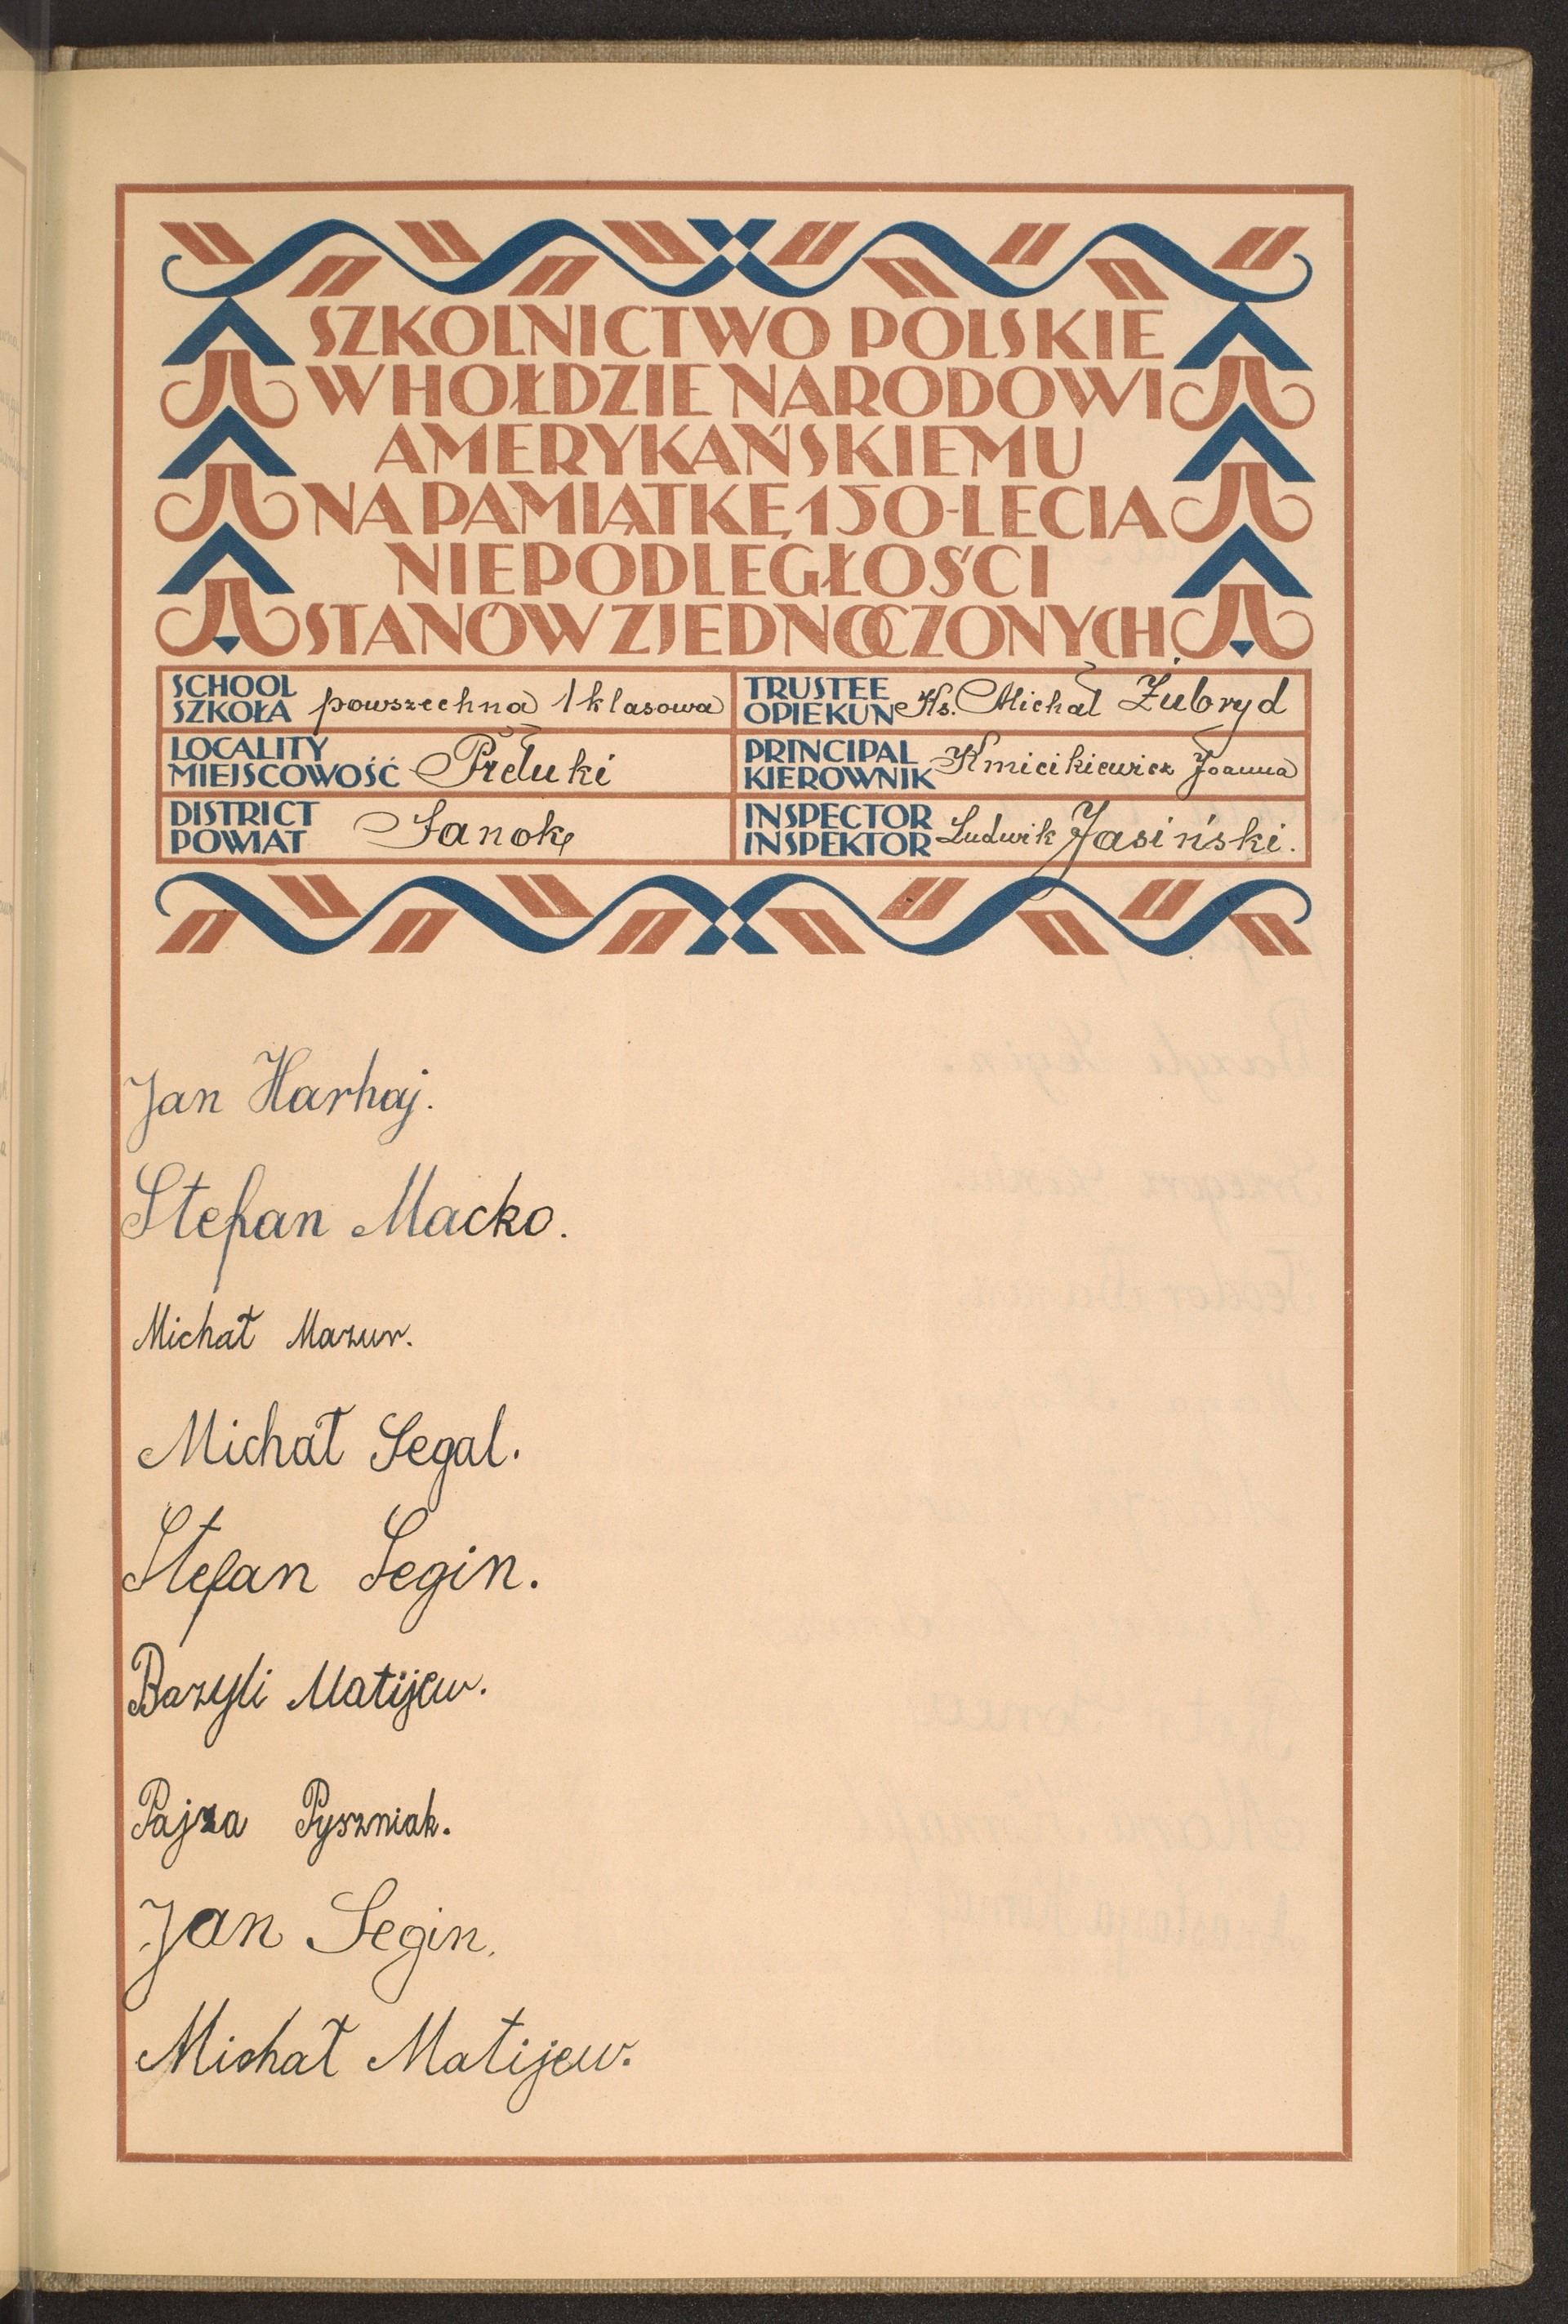 SZKOLNICTWO POLSKIE
W HOŁDZIE NARODOWI
AMERYKAŃSKIEMU
NA PAMIĄTKĘ 150-LECIA
NIEPODLEGŁOŚCI
STANÓW ZJEDNOCZONYCH
SCHOOL
SZKOŁA powszechna 1 klasowa
TRUSTEE
OPIEKUN Ks. Michał Żubryd
LOCALITY
MIEJSCOWOŚĆ Prełuki
PRINCIPAL
KIEROWNIK Kmicikiewicz Joanna
DISTRICT
POWIAT Sanok
INSPECTOR
INSPEKTOR Ludwik Jasiński.
Jan Harhaj.
Stefan Macko.
Michał Mazur.
Michał Segal.
Stefan Segin.
Bazyli Matijew.
Pajza Pyszniak.
Jan Segin.
Michał Matijew.